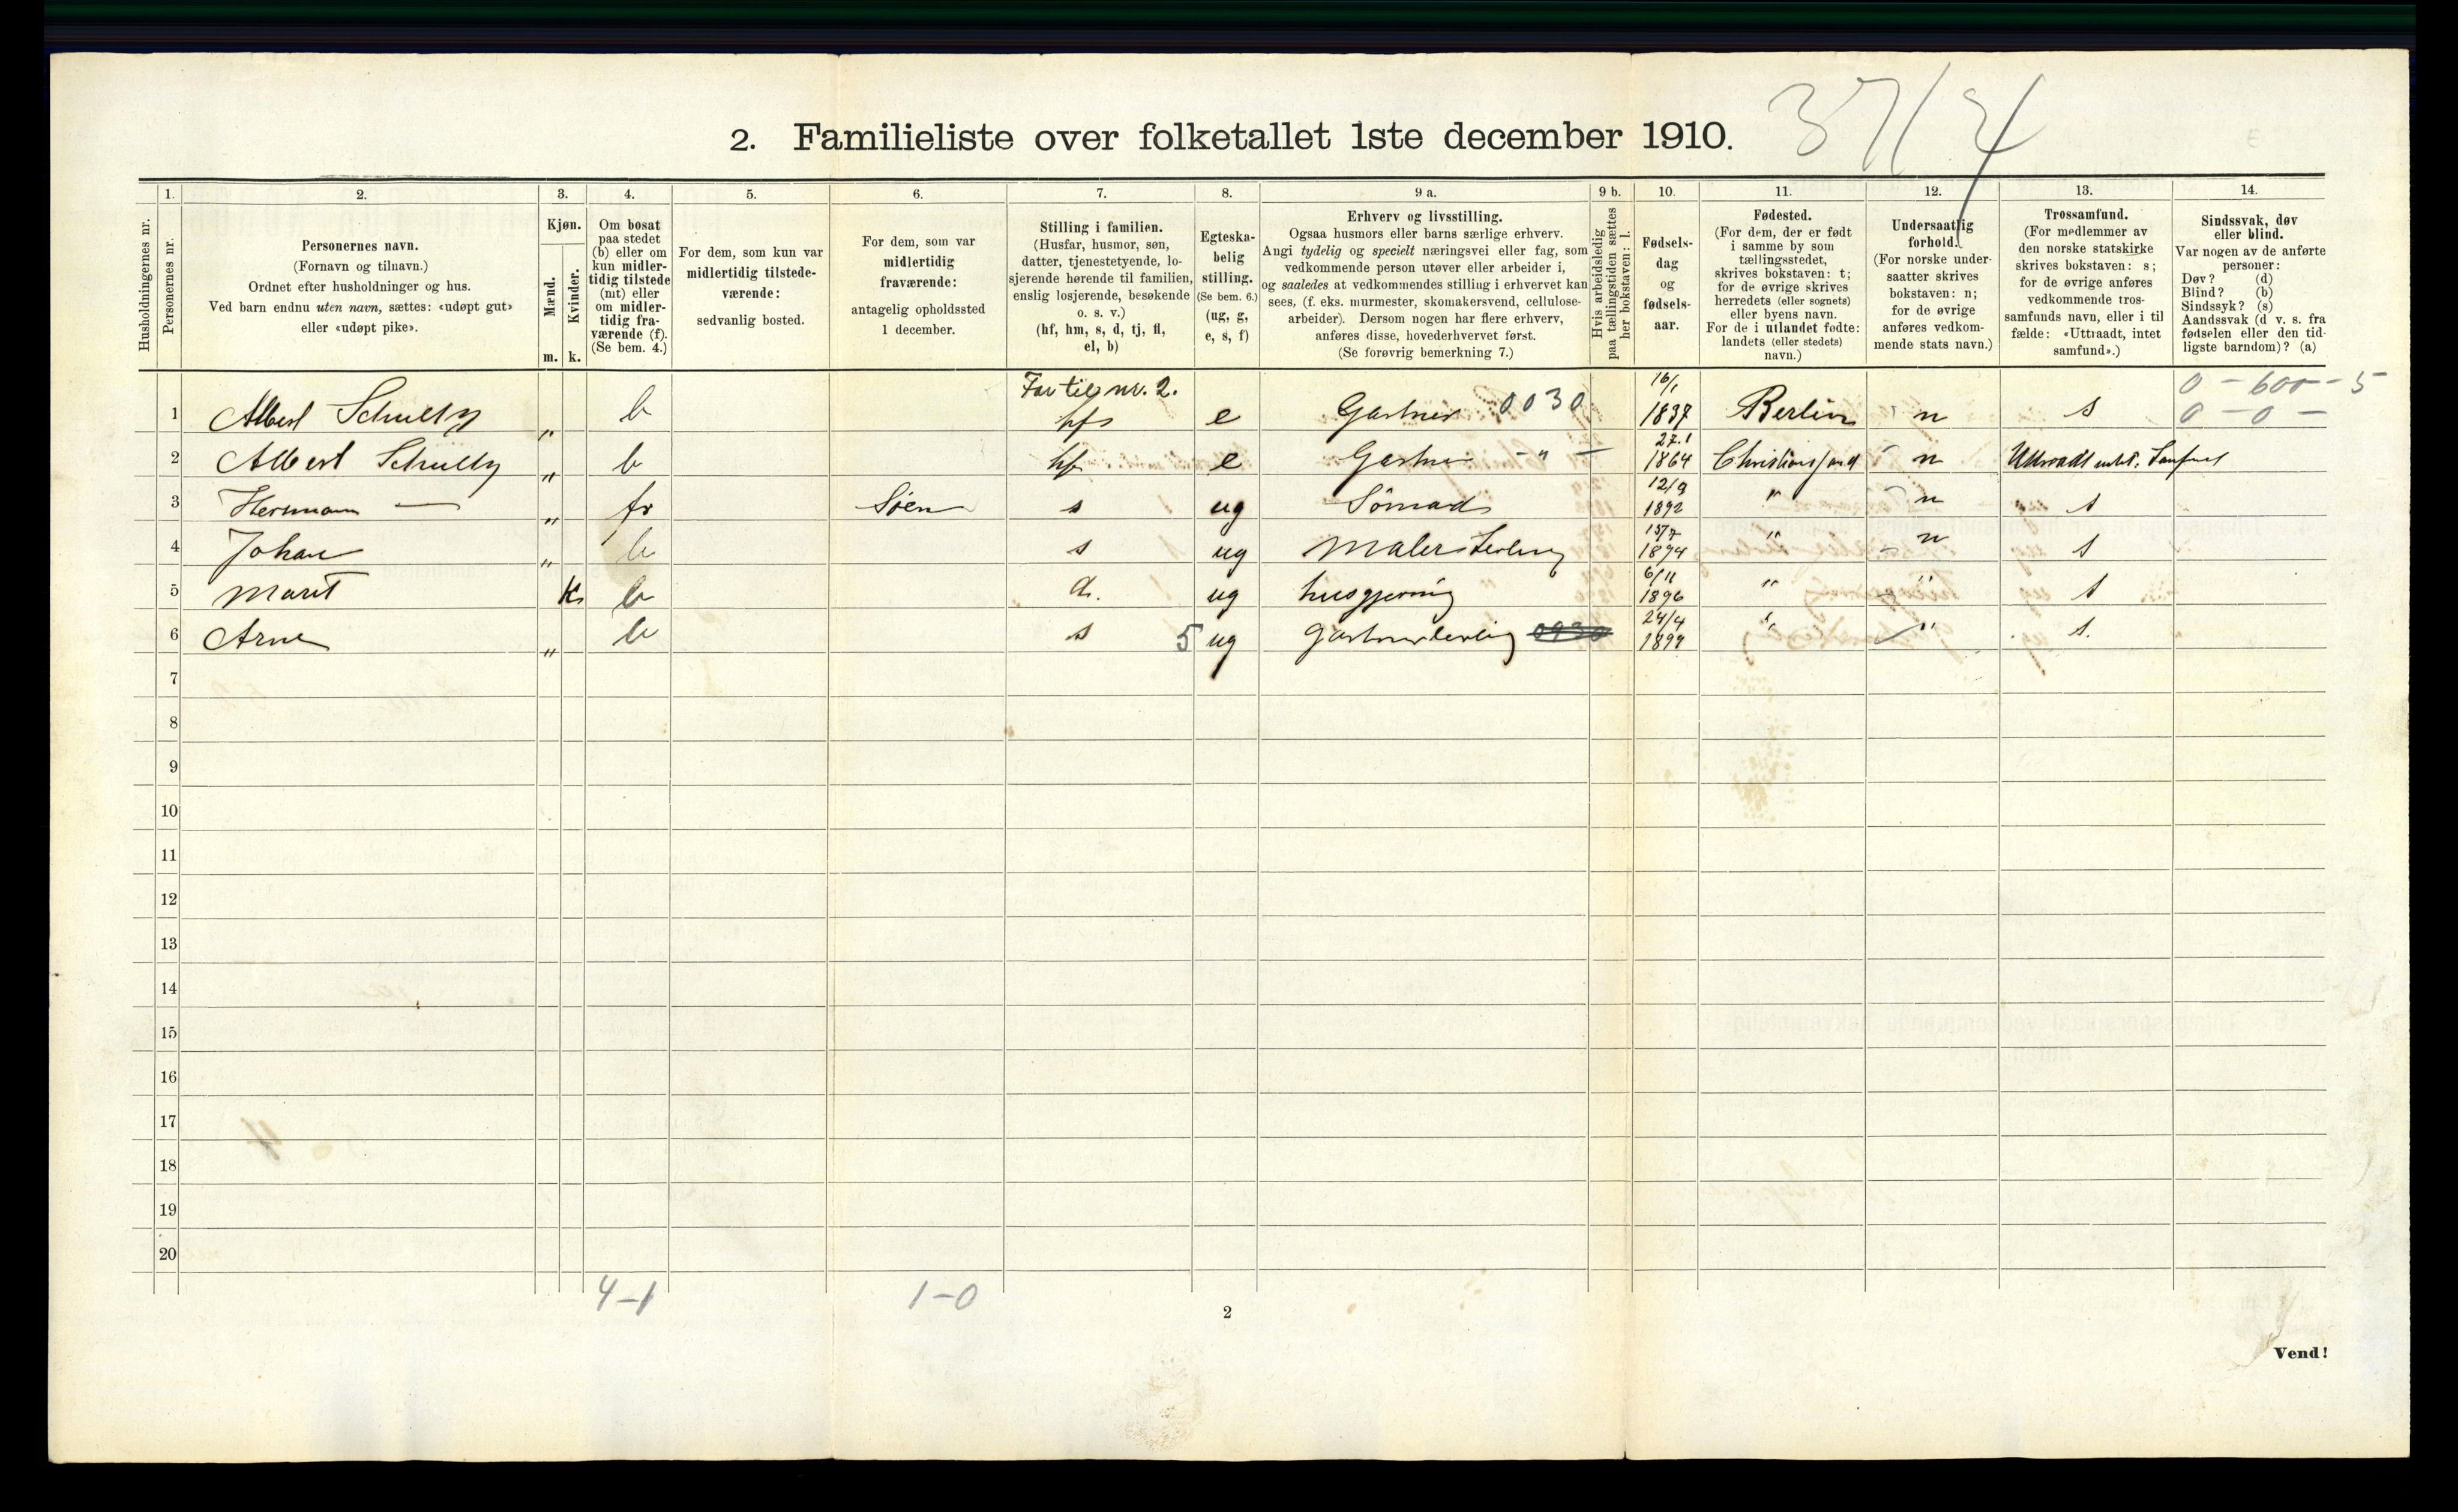 37/4
2. Familieliste over folketallet 1ste december 1910.
1. 2. 3. 4. 5. 6. 7. 8. 9 a. 9 b. 10. 11. 12. 13. 14.
Husholdningernes nr.
Personernes nr.
Personernes navn.
(Fornavn og tilnavn.)
Ordnet efter husholdninger og hus.
Ved barn endnu uten navn, sættes: «udøpt gut»
eller «udøpt pike».
Kjøn.
Mænd.
Kvinder.
m. k.
Om bosat
paa stedet
(b) eller om
kun midler-
tidig tilstede
(mt) eller
om midler-
tidig fra-
værende (f).
(Se bem. 4.)
For dem, som kun var
midlertidig tilstede-
værende:
sedvanlig bosted.
For dem, som var
midlertidig
fraværende:
antagelig opholdssted
1 december.
Stilling i familien.
(Husfar, husmor, søn,
datter, tjenestetyende, lo-
sjerende hørende til familien,
enslig losjerende, besøkende
o. s. v.)
(hf, hm, s, d, tj, fl,
el, b)
Egteska-
belig
stilling.
(Se bem. 6.)
(ug, g,
e, s, f)
Erhverv og livsstilling.
Ogsaa husmors eller barns særlige erhverv.
Angi tydelig og specielt næringsvei eller fag, som
vedkommende person utøver eller arbeider i,
og saaledes at vedkommendes stilling i erhvervet kan
sees, (f. eks. murmester, skomakersvend, cellulose-
arbeider). Dersom nogen har flere erhverv,
anføres disse, hovederhvervet først.
(Se forøvrig bemerkning 7.)
Hvis arbeidsledig
paa tællingstiden sættes
her bokstaven: l.
Fødsels-
dag
og
fødsels-
aar.
Fødested.
(For dem, der er født
i samme by som
tællingsstedet,
skrives bokstaven: t;
for de øvrige skrives
herredets (eller sognets)
eller byens navn.
For de i utlandet fødte:
landets (eller stedets)
navn.)
Undersaatlig
forhold.
(For norske under-
saatter skrives
bokstaven: n;
for de øvrige
anføres vedkom-
mende stats navn.)
Trossamfund.
(For medlemmer av
den norske statskirke
skrives bokstaven: s;
for de øvrige anføres
vedkommende tros-
samfunds navn, eller i til
fælde: «Uttraadt, intet
samfund».)
Sindssvak, døv
eller blind.
Var nogen av de anførte
personer:
Døv? (d)
Blind? (b)
Sindssyk? (s)
Aandssvak (d v. s. fra
fødselen eller den tid-
ligste barndom)? (a)
Far til nr. 2. 16/1 0 - 600 - 5
1 Albert Schultz " b hf e Gartner 0030 1837 Berlin n s 0 - 0 -
2 Albert Schultz " b hf e Gartner - " - 27.1 1864 Christiansand n
3 Hermann — " fr Söen s ug Sömad 12/9 1892 " n s
4 Johan " b s ug Malerlerling 15/7 1894 " n s
5 Marit k b d. ug husgjerning 6/11 1896 " " s
6 Arne " b s 5 ug Gartnerlerling 24/4 1899 " " s.
7
8
9
10
11
12
13
14
15
16
17
18
19
20
4-1 1-0
2
Vend!